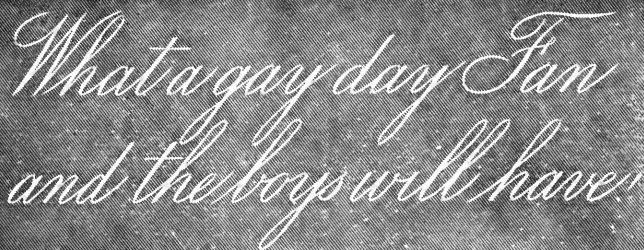 What a gay day Fan
and the boys will have